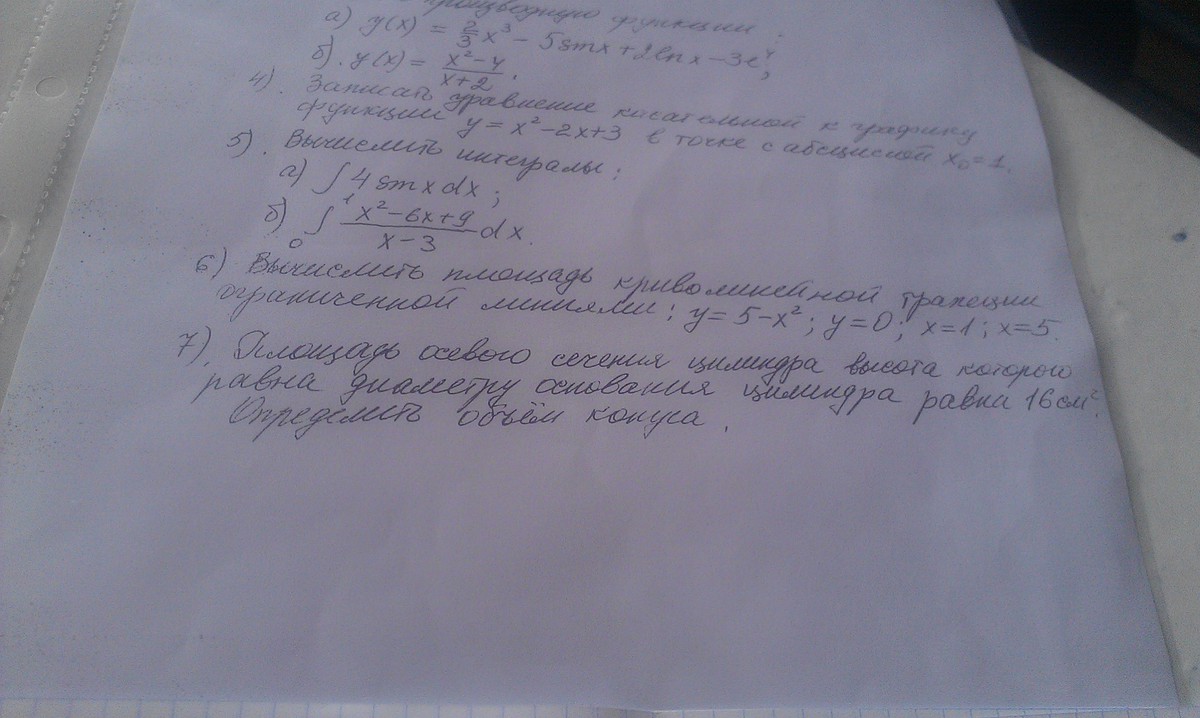 производную функции:
а) y(x) = 2/3 x³ - 5sinx + 2lnx - 3eˣ;
б). y(x) = (x²-4)/(x+2).
4). Записать уравнение касательной к графику
функции y = x²-2x+3 в точке с абсциссой x₀=1.
5). Вычислить интегралы:
а) ∫4sinxdx;
б) ∫₀¹ (x²-6x+9)/(x-3) dx.
6) Вычислить площадь криволинейной трапеции
ограниченной линиями: y=5-x²; y=0; x=1; x=5.
7). Площадь осевого сечения цилиндра высота которого
равна диаметру основания цилиндра равна 16 см².
Определить объём конуса.